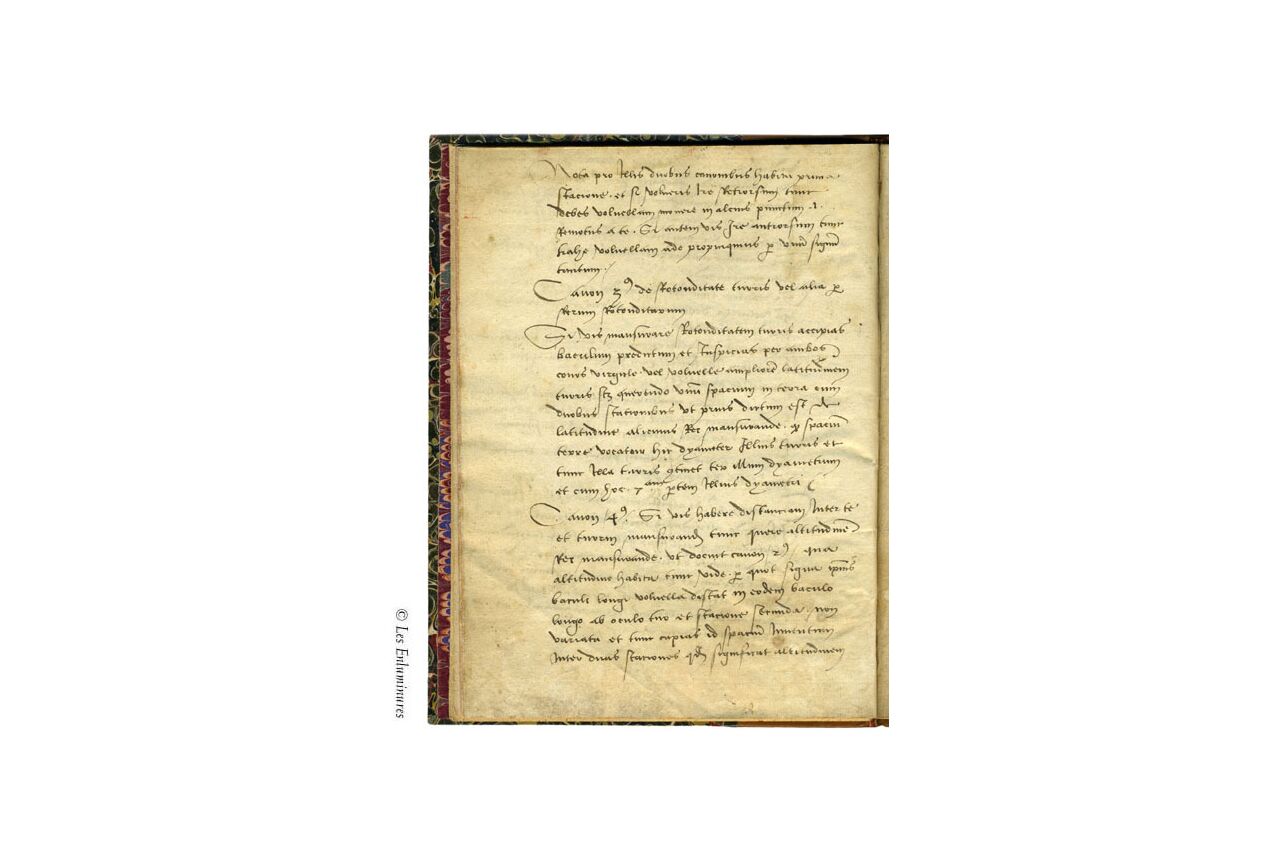 Nota pro Illis duobus canonibus habita prima
stacione. et si volueris Ire Retrorsum tunc
debes volvellam movere in alcius punctum .i.
Remotius a te. Si autem vis Ire antrorsum tunc
trahe volvellam ad te propinquius p unu signu
tantum.
Canon 3⁹ de Rotonditate turris vel alia p
Rerum Rotonditatum
Si vis mansurare Rotonditatem turris accipias
baculum predictum et Inspicias per ambos
conos virgule vel volvelle ampliore latitudinem
turris scz querendo unu spacium in terra cum
duobus stacionibus ut prius dictum est de
latitudine alicuius Rei mansurande. qd spaciu
terre vocatur hic dyameter Illius turris et
tunc Illa turris qtinet ter illum dyametrum
et cum hoc 7am ptem Illius dyametri
Canon 4⁹. Si vis habere distanciam Inter te
et turrim mansurand tunc quere altitudine
Rei mansurande. ut docuit canon 2⁹ qua
altitudine habita tunc vide. p quot signa ipius
baculi longi volvella distat in eodem baculo
longo ab oculo tuo et stacione secunda. non
variata et tunc capias id spaciu Inventum
Inter duas staciones qd significat altitudinem
© Les Enluminures